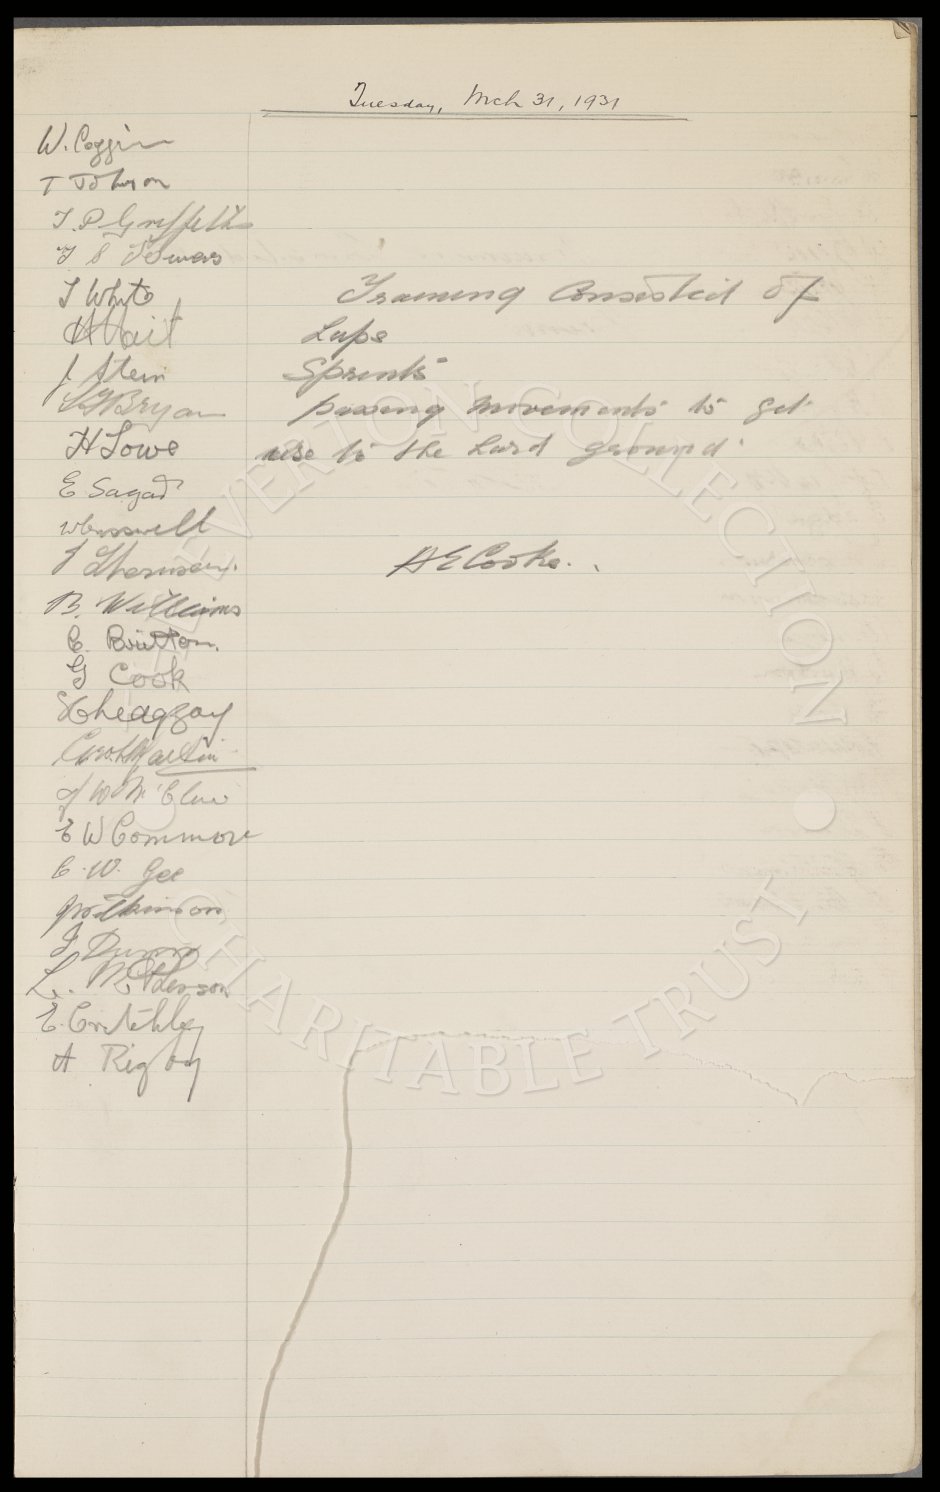 Tuesday, Mch 31, 1931
W. Coggin
T Johnson
T. P. Griffiths
T White
J Stein
L F Bryan
H Lowe
E Sagar
B. Williams
C. Britton
G Cook
Martin
J W McClure
E W Common
C. W. Gee
J Dunn
L. McPherson
E. Critchley
A Rigby
Training Consisted of
Laps
Sprints
passing movements to get
use to the hard ground
H E Cooke.
EVERTON COLLECTION
CHARITABLE TRUST